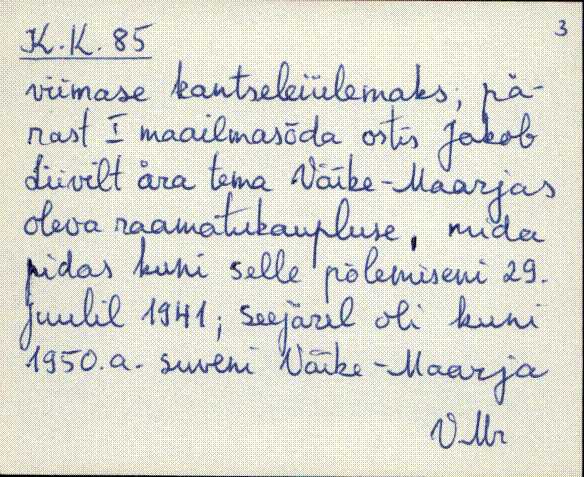 3
K.K. 85
viimase kantseleiülemaks; pä-
rast I maailmasõda ostis Jakob
Liivilt ära tema Väike-Maarjas
oleva raamatukaupluse, mida
pidas kuni selle põlemiseni 29.
juulil 1941; seejärel oli kuni
1950.a. suveni Väike-Maarja
VMr